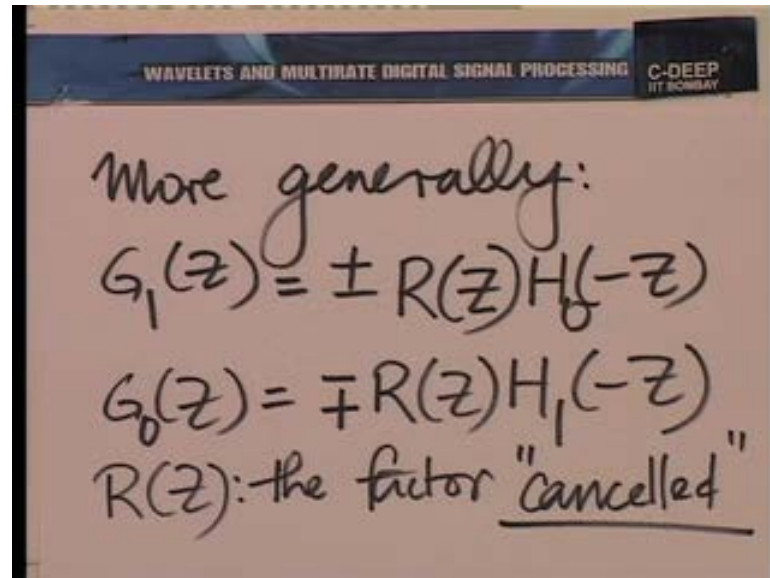 WAVELETS AND MULTIRATE DIGITAL SIGNAL PROCESSING
C-DEEP
IIT BOMBAY
More generally:
G₁(Z) = ± R(Z)H₀(-Z)
G₀(Z) = ∓ R(Z)H₁(-Z)
R(Z): the factor "cancelled"